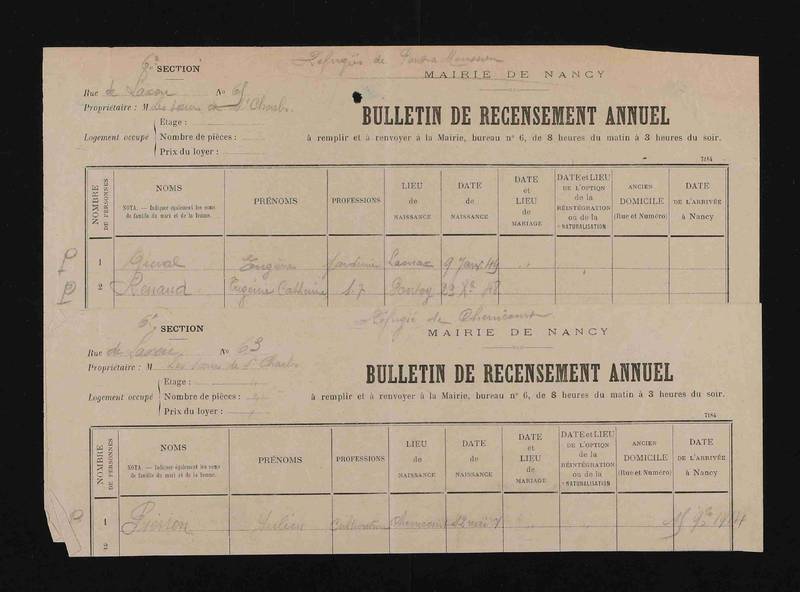 6e SECTION
Refugiés de
MAIRIE DE NANCY
Rue de Laxou No 63
Propriétaire : M Les sœurs de St Charles
BULLETIN DE RECENSEMENT ANNUEL
Logement occupé
Etage :
Nombre de pièces :
Prix du loyer :
à remplir et à renvoyer à la Mairie, bureau n° 6, de 8 heures du matin à 3 heures du soir.
7184
NOMBRE DE PERSONNES
NOMS
NOTA. — Indiquer également les noms de famille du mari et de la femme.
PRÉNOMS
PROFESSIONS
LIEU de NAISSANCE
DATE de NAISSANCE
DATE et LIEU de MARIAGE
DATE et LIEU DE L'OPTION de la RÉINTÉGRATION ou de la NATURALISATION
ANCIEN DOMICILE (Rue et Numéro)
DATE DE L'ARRIVÉE à Nancy
P 1 Eugène 9 Janv 49
P 2 Renaud Eugénie Catherine s.p 48
6e SECTION
Refugié de Chenicourt
MAIRIE DE NANCY
Rue de Laxou No 63
Propriétaire : M Les sœurs de St Charles
BULLETIN DE RECENSEMENT ANNUEL
Logement occupé
Etage :
Nombre de pièces :
Prix du loyer :
à remplir et à renvoyer à la Mairie, bureau n° 6, de 8 heures du matin à 3 heures du soir.
7184
NOMBRE DE PERSONNES
NOMS
NOTA. — Indiquer également les noms de famille du mari et de la femme.
PRÉNOMS
PROFESSIONS
LIEU de NAISSANCE
DATE de NAISSANCE
DATE et LIEU de MARIAGE
DATE et LIEU DE L'OPTION de la RÉINTÉGRATION ou de la NATURALISATION
ANCIEN DOMICILE (Rue et Numéro)
DATE DE L'ARRIVÉE à Nancy
P 1 Pierson Julien Cultivateur Chenicourt 12 mai
2